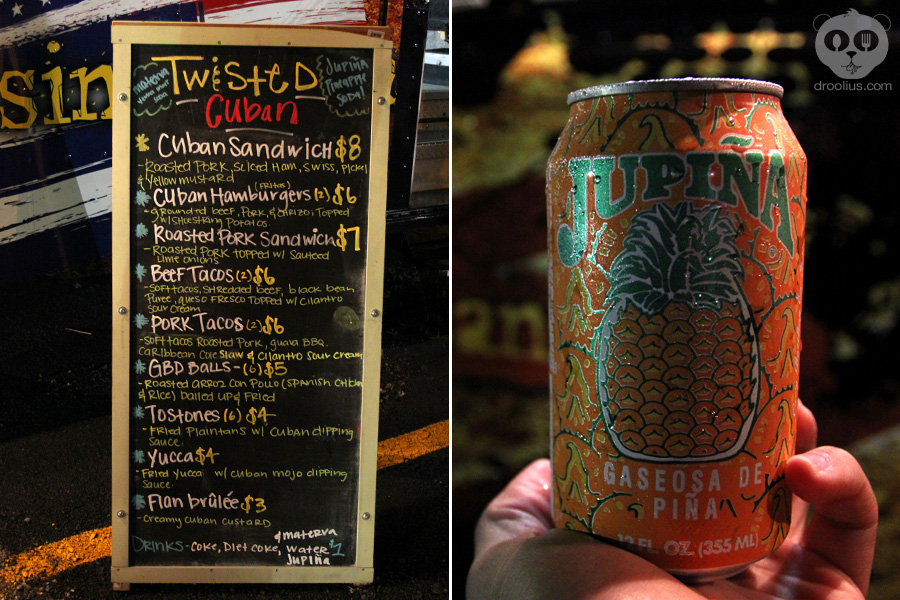 sin
materva
Yerba mate
soda
Twisted
Cuban
Jupiña
Pineapple
Soda!
Cuban Sandwich $8
- Roasted Pork, sliced Ham, swiss, pickel
& yellow mustard
Cuban Hamburgers (2) $6
(Fritas)
- grounded beef, Pork, & chrizo. Topped
w/ shoestring potatos.
Roasted Pork Sandwich $7
- Roasted pork topped w/ sauteed
lime onions
Beef Tacos (2) $6
- soft tacos, shredded beef, black bean
Puree, queso fresco topped w/ cilantro
sour cream
Pork Tacos (2) $6
- soft tacos Roasted Pork, guava BBQ.
caribbean cole slaw & cilantro sour cream
GBD Balls - (6) $5
- Roasted arroz con pollo (spanish chicken
& Rice) balled up & fried
Tostones (6) $4
- Fried Plaintans w/ cuban dipping
sauce.
Yucca $4
- Fried Yucca w/ cuban mojo dipping
sauce.
Flan brûlée $3
- creamy cuban custard
& materva
Drinks - Coke, Diet coke, water $1
Jupiña
JUPIÑA
GASEOSA DE
PIÑA
12 FL. OZ. (355 ML)
droolius.com